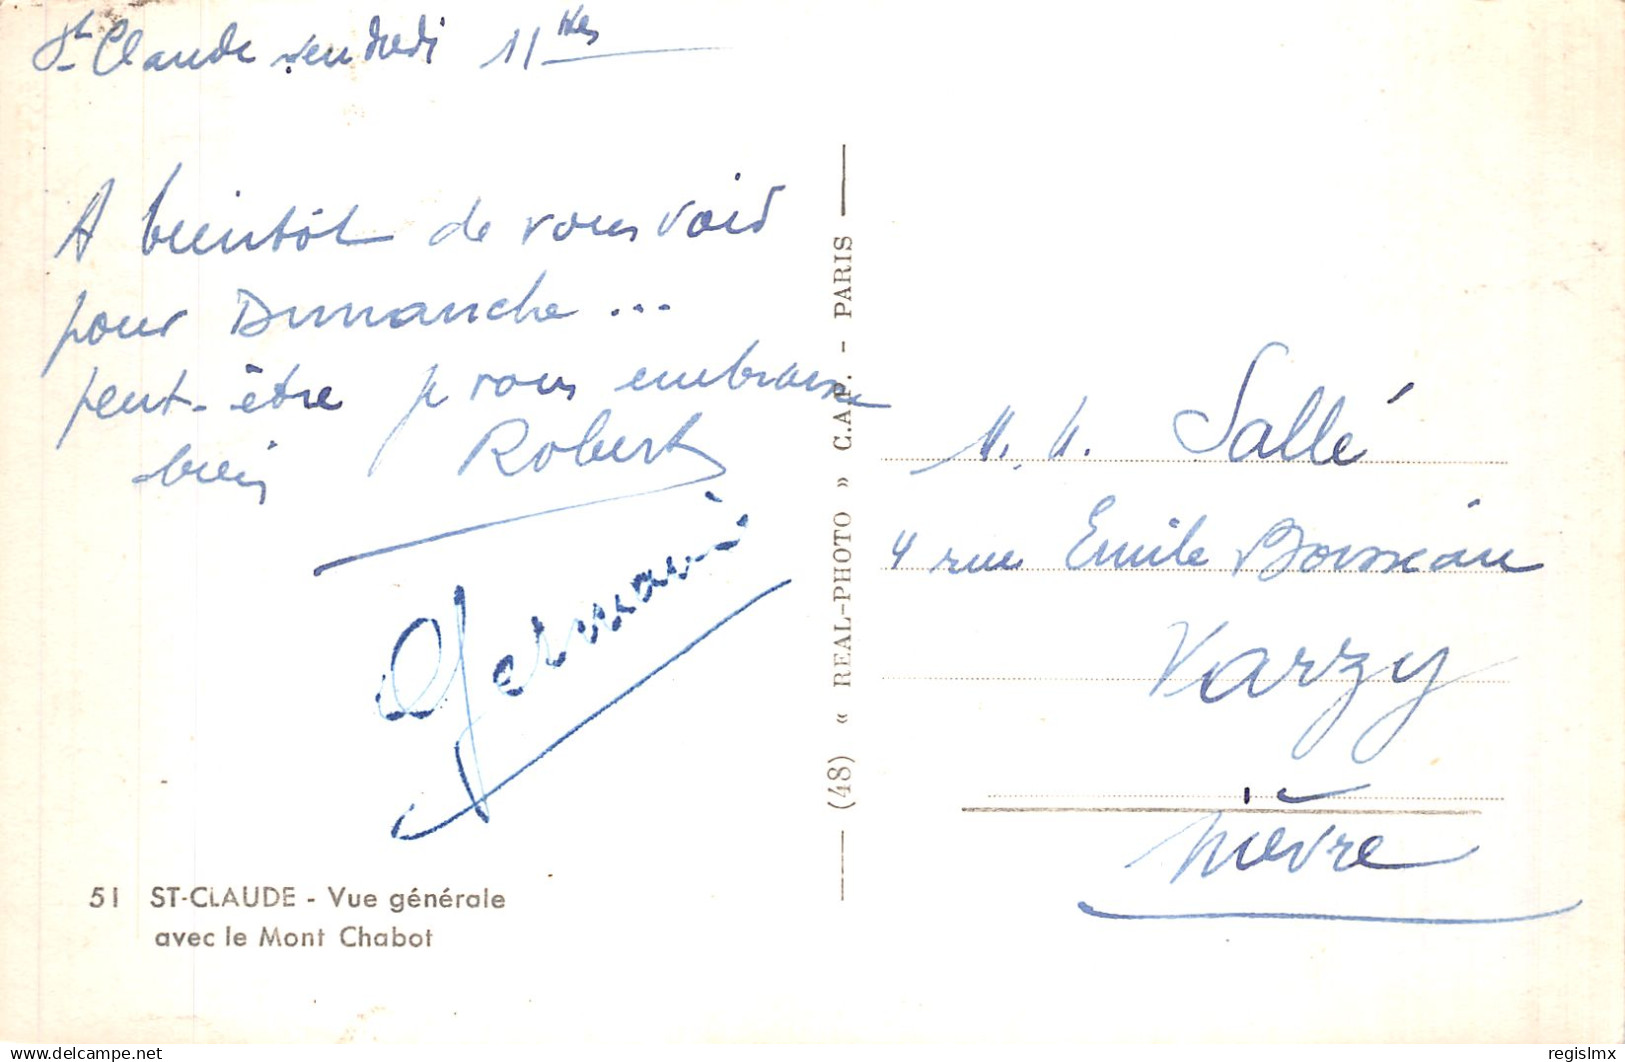 St Claude vendredi 11 hes
A bientôt de vous voir
pour Dimanche ...
peut-être je vous embrasse
bien Robert
Germaine
M. M. Sallé
4 rue Emile
Varzy
Nièvre
(48) « REAL-PHOTO » C.A.P. - PARIS
51 ST-CLAUDE - Vue générale
avec le Mont Chabot
delcampe.net
regislmx